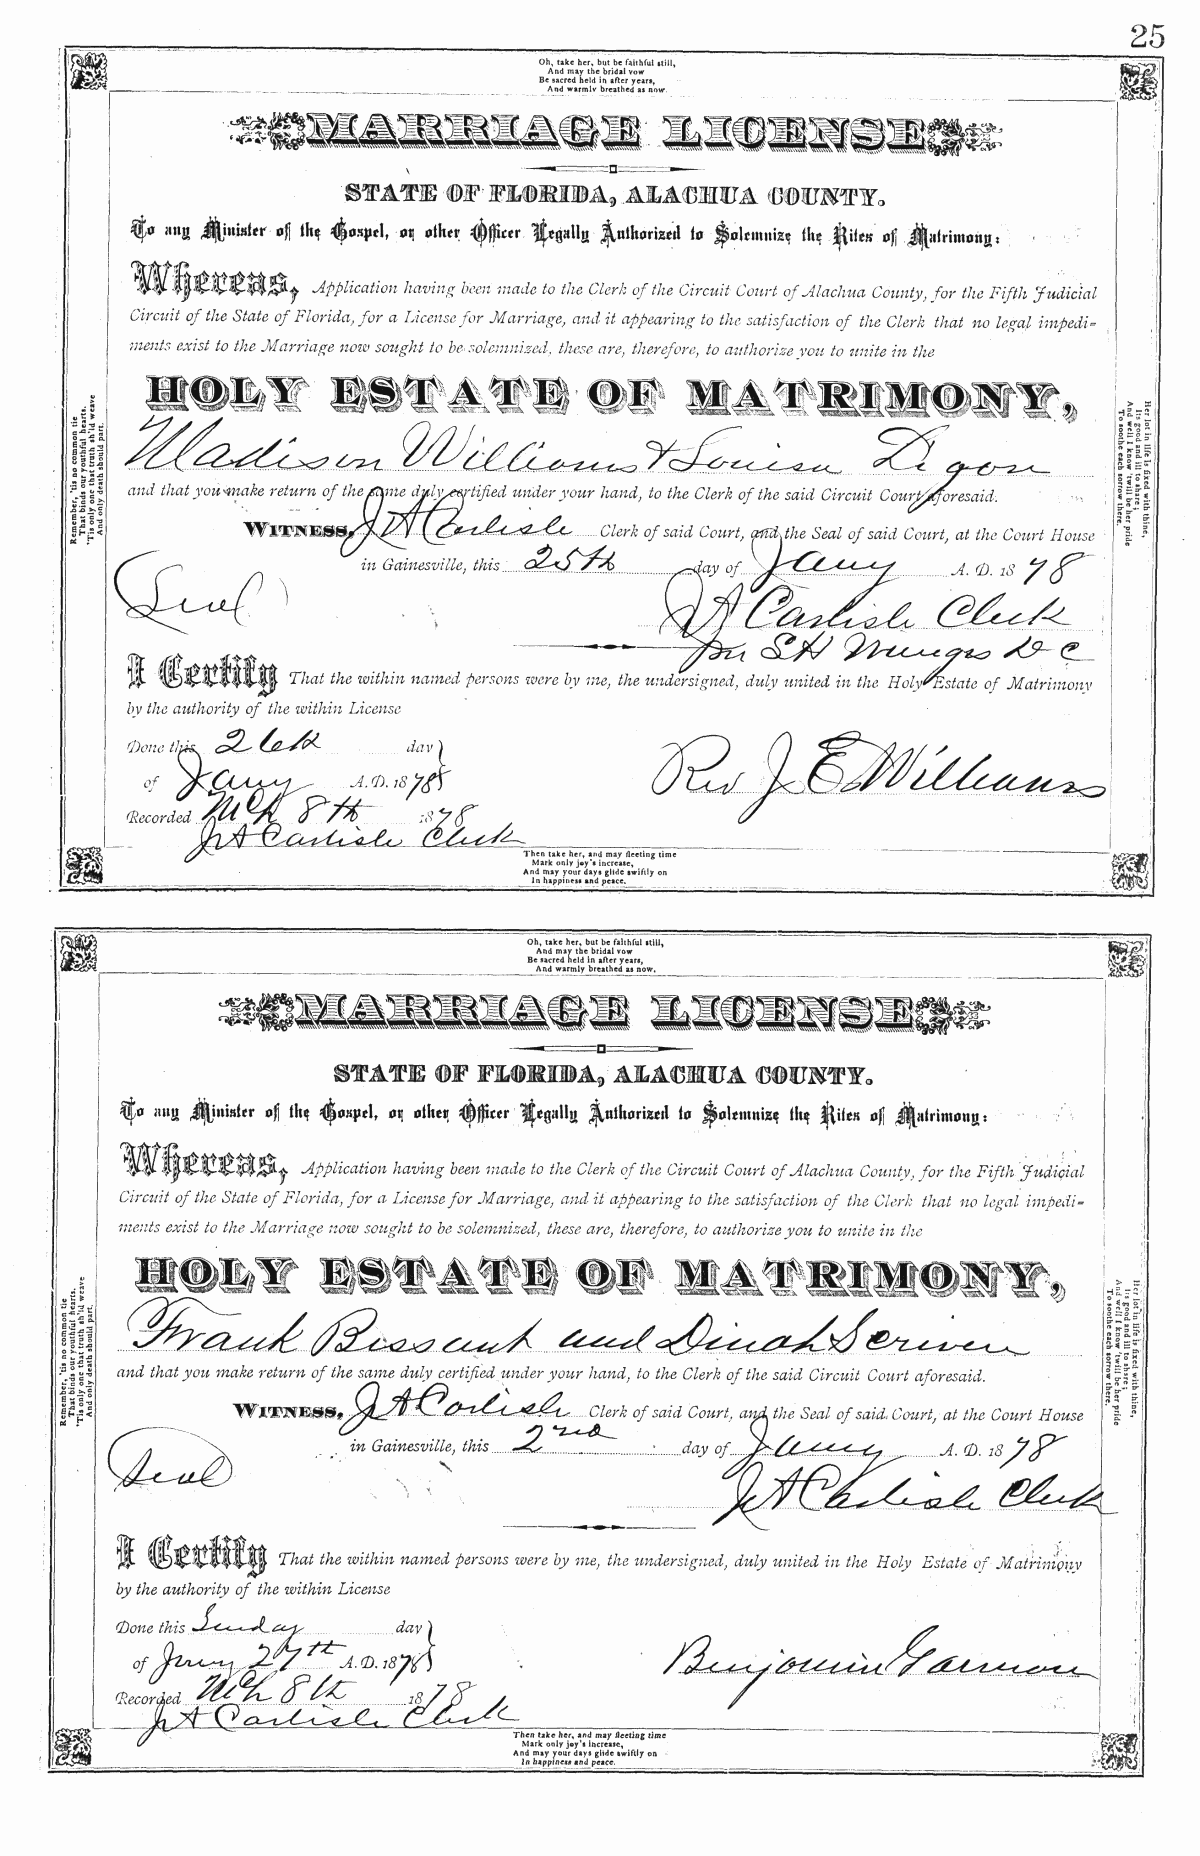 25
Oh, take her, but be faithful still,
And may the bridal vow
Be sacred held in after years,
And warmly breathed as now.
MARRIAGE LICENSE
STATE OF FLORIDA, ALACHUA COUNTY.
To any Minister of the Gospel, or other Officer Legally Authorized to Solemnize the Rites of Matrimony:
Whereas, Application having been made to the Clerk of the Circuit Court of Alachua County, for the Fifth Judicial
Circuit of the State of Florida, for a License for Marriage, and it appearing to the satisfaction of the Clerk that no legal impedi-
ments exist to the Marriage now sought to be solemnized, these are, therefore, to authorize you to unite in the
HOLY ESTATE OF MATRIMONY,
Madison Williams & Louisa Digon
and that you make return of the same duly certified under your hand, to the Clerk of the said Circuit Court aforesaid.
WITNESS, J A Carlisle Clerk of said Court, and the Seal of said Court, at the Court House
in Gainesville, this 25th day of Jany A. D. 1878
Seal
J A Carlisle Clerk
per S H D C
I Certify That the within named persons were by me, the undersigned, duly united in the Holy Estate of Matrimony
by the authority of the within License
Done this 26th day
of Jany A.D. 1878
Rev J E Williams
Recorded Mch 8th 1878
J A Carlisle Clerk
Remember, 'tis no common tie
That binds our youthful hearts.
'Tis only one that truth sh'ld weave
And only death should part.
Her lot in life is fixed with thine,
Its good and ill to share;
And well I know 'twill be her pride
To soothe each sorrow there.
Then take her, and may fleeting time
Mark only joy's increase,
And may your days glide swiftly on
In happiness and peace.
Oh, take her, but be faithful still,
And may the bridal vow
Be sacred held in after years,
And warmly breathed as now.
MARRIAGE LICENSE
STATE OF FLORIDA, ALACHUA COUNTY.
To any Minister of the Gospel, or other Officer Legally Authorized to Solemnize the Rites of Matrimony:
Whereas, Application having been made to the Clerk of the Circuit Court of Alachua County, for the Fifth Judicial
Circuit of the State of Florida, for a License for Marriage, and it appearing to the satisfaction of the Clerk that no legal impedi-
ments exist to the Marriage now sought to be solemnized, these are, therefore, to authorize you to unite in the
HOLY ESTATE OF MATRIMONY,
Frank Bissant and Dinah Scriven
and that you make return of the same duly certified under your hand, to the Clerk of the said Circuit Court aforesaid.
WITNESS, J A Carlisle Clerk of said Court, and the Seal of said Court, at the Court House
in Gainesville, this 2nd day of Jany A. D. 1878
Seal
J A Carlisle Clerk
I Certify That the within named persons were by me, the undersigned, duly united in the Holy Estate of Matrimony
by the authority of the within License
Done this Sunday day
of Jany 27th A.D. 1878
Benjamin Garmon
Recorded Mch 8th 1878
J A Carlisle Clerk
Remember, 'tis no common tie
That binds our youthful hearts.
'Tis only one that truth sh'ld weave
And only death should part.
Her lot in life is fixed with thine,
Its good and ill to share;
And well I know 'twill be her pride
To soothe each sorrow there.
Then take her, and may fleeting time
Mark only joy's increase,
And may your days glide swiftly on
In happiness and peace.